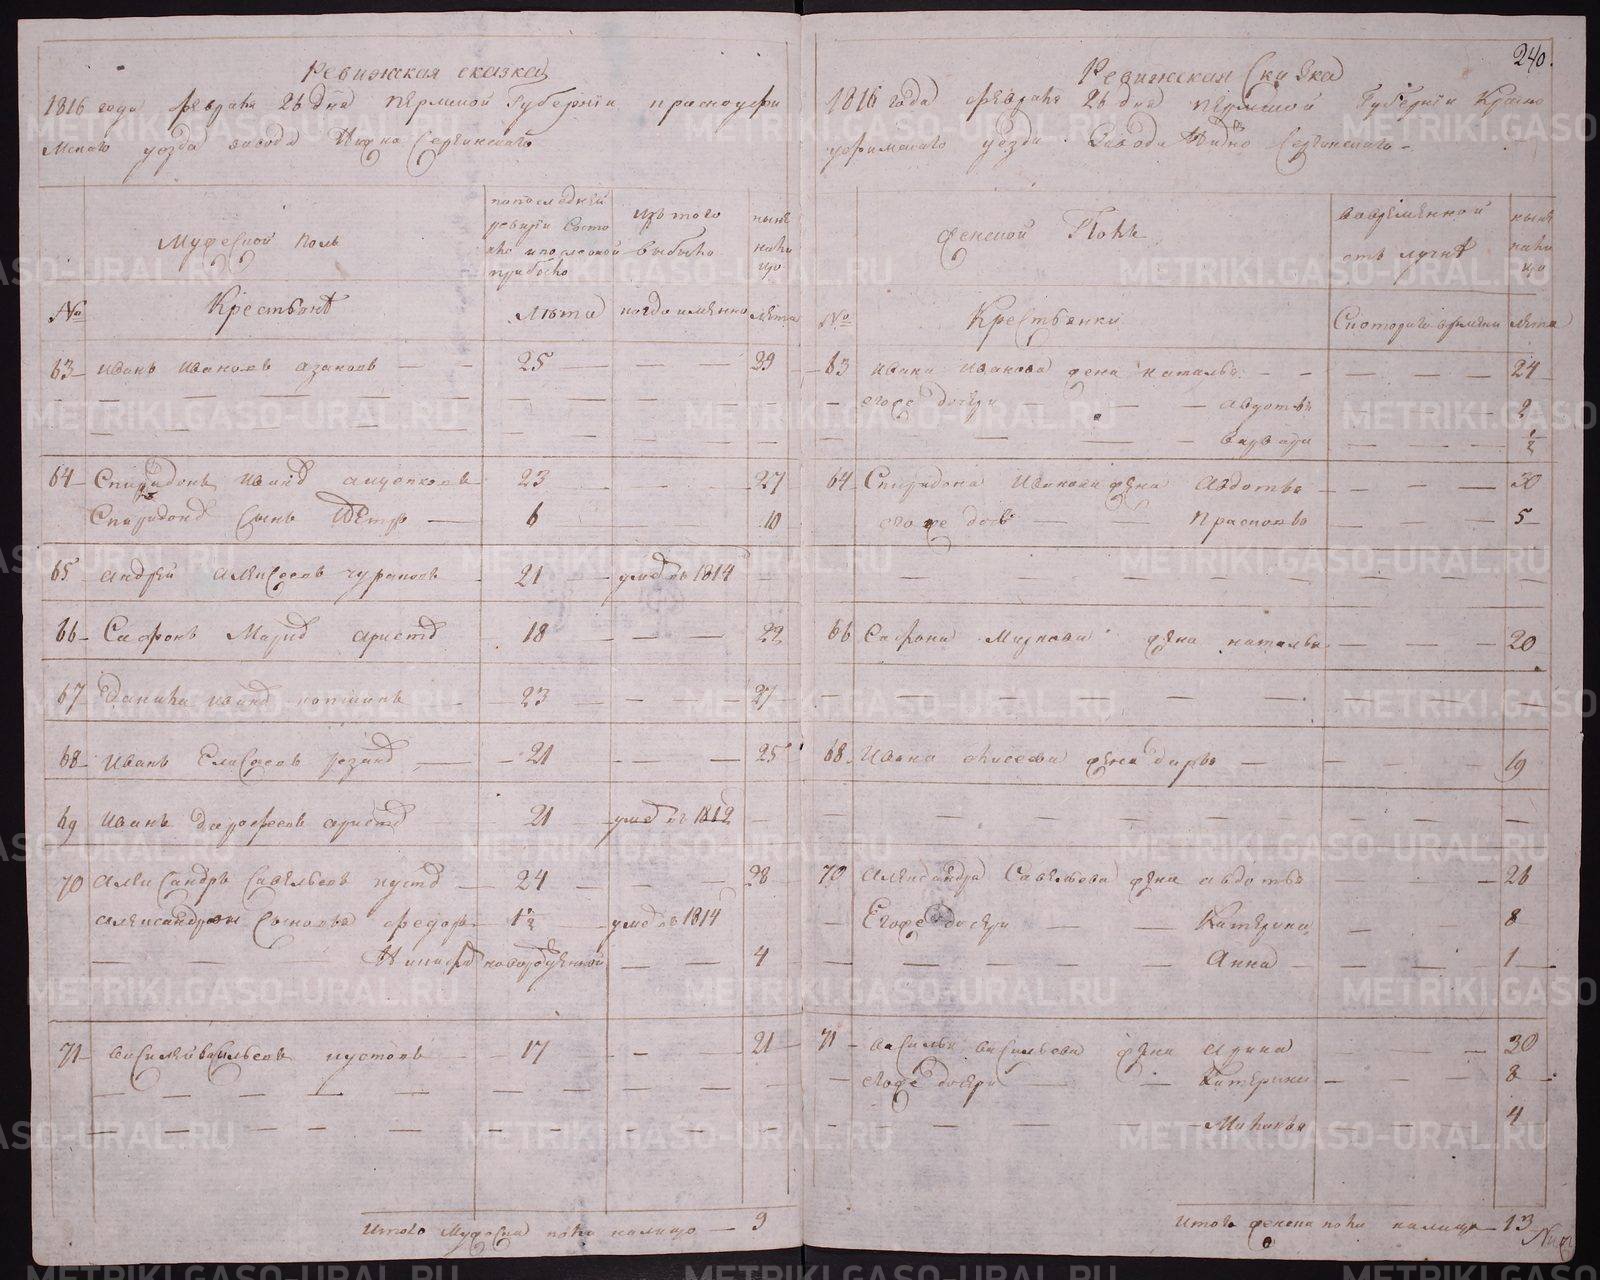 240.
Ревижская сказка
1816 года февраля 26 дня пермской Губернїи красноуфи
мскаго уезда завода Нижно Сергинскаго
мужеской полъ
попоследней ревизїи состояло и после оной прибыло
изъ того выбыло
ныне налицо
№ Крестьяне лѣта когда имянно лѣта
63 иванъ ивановъ азановъ 25 29
64 Спиридонъ иванд 23 27
Спиридонд сынъ петр 6 10
65 андрей алексеевъ 21 умер в 1814
66 Сафонъ Марко аристд 18 22
67 Данила иванд 23 27
68 иванъ Елисеевъ 21 25
69 иванъ дорофеевъ аристд 21 умер въ 1812
70 александръ савельевъ пустд 24 28
александровы сыновья федоръ 1 1/2 умер въ 1814
новорожденной 4
71 василей васильевъ пустовъ 17 21
Итого мужеска пола налицо 9
Ревижская Сказка
1816 года февраля 26 дня пермской Губернїи Красно
уфимскаго уезда Завода Нижно Сергинскаго
женской Полъ
вовременной отлучке
ныне налицо
№ Крестьянки Скотораго времяни лѣта
63 ивана иванова жена наталья 24
егоже дочери авдотья 2
варвара 1/2
64 Спиридона иванова жена авдотья 30
егоже дочь прасковья 5
66 Сафона Маркова жена наталья 20
68 ивана елисеева жена дарья 19
70 александра Савельева жена авдотья 26
Егоже дочери Катерина 8
Анна 1
71 василья васильева жена арина 30
егоже дочери Катерина 8
Маланья 4
итого женска пола налицо 13
METRIKI.GASO-URAL.RU